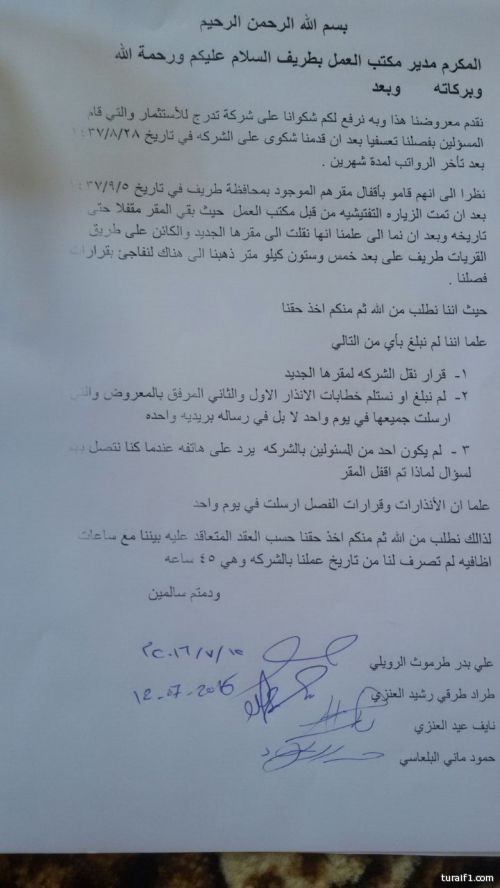 بسم الله الرحمن الرحيم
المكرم مدير مكتب العمل بطريف السلام عليكم ورحمة الله
وبركاته وبعد
نقدم معروضنا هذا وبه نرفع لكم شكوانا على شركة تدرج للأستثمار والتي قام
المسؤلين بفصلنا تعسفيا بعد ان قدمنا شكوى على الشركه في تاريخ ١٤٣٧/٨/٢٨
بعد تأخر الرواتب لمدة شهرين .
نظرا الى انهم قامو بأقفال مقرهم الموجود بمحافظة طريف في تاريخ ١٤٣٧/٩/٥
بعد ان تمت الزياره التفتيشيه من قبل مكتب العمل حيث بقي المقر مقفلا حتى
تاريخه وبعد ان نما الى علمنا انها نقلت الى مقرها الجديد والكائن على طريق
القريات طريف على بعد خمس وستون كيلو متر ذهبنا الى هناك لنفاجئ بقرارات
فصلنا .
حيث اننا نطلب من الله ثم منكم اخذ حقنا
علما اننا لم نبلغ بأي من التالي
١- قرار نقل الشركه لمقرها الجديد
٢- لم نبلغ او نستلم خطابات الانذار الاول والثاني المرفق بالمعروض والتي
ارسلت جميعها في يوم واحد لا بل في رساله بريديه واحده
٣ - لم يكون احد من المسئولين بالشركه يرد على هاتفه عندما كنا نتصل بهم
لسؤال لماذا تم اقفل المقر
علما ان الأنذارات وقرارات الفصل ارسلت في يوم واحد
لذالك نطلب من الله ثم منكم اخذ حقنا حسب العقد المتعاقد عليه بيننا مع ساعات
اظافيه لم تصرف لنا من تاريخ عملنا بالشركه وهي ٤٥ ساعه
ودمتم سالمين
علي بدر طرموث الرويلي
طراد طرقي رشيد العنزي 12-07-2016
نايف عيد العنزي
حمود ماني البلعاسي
turaif1.com